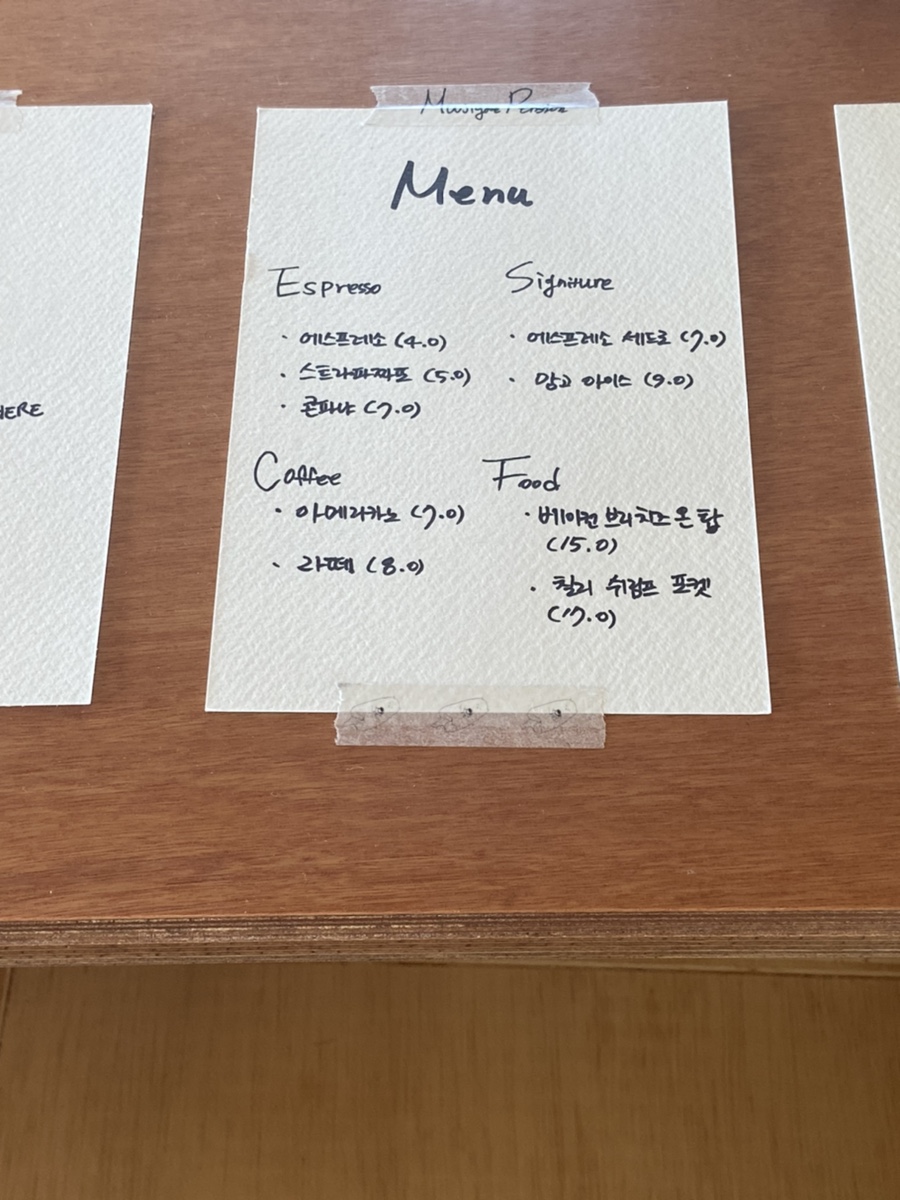 Menu
Espresso
· 에스프레소 (4.0)
· 스트라파짜또 (5.0)
· 콘파냐 (7.0)
Signiture
· 에스프레소 세도로 (7.0)
· 망고 아이스 (9.0)
Coffee
· 아메리카노 (7.0)
· 라떼 (8.0)
Food
· 베이컨 브리치즈 온 탑
(15.0)
· 칠리 쉬림프 포켓
(17.0)